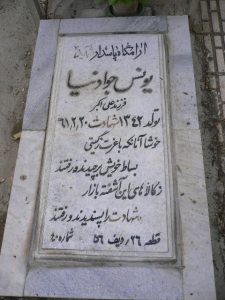 آرامگاه پاسدار شهید
یونس جوادنیا
فرزند علی اکبر
تولد ۱۳۴۲ شهادت ۶۱/۲/۲۰
خوشا آنانکه با عزت ز گیتی
بساط خویش برچیدند و رفتند
ز کالاهای این آشفته بازار
شهادت را پسندیدند و رفتند
قطعه ۲۶ ردیف ۵۶ شماره